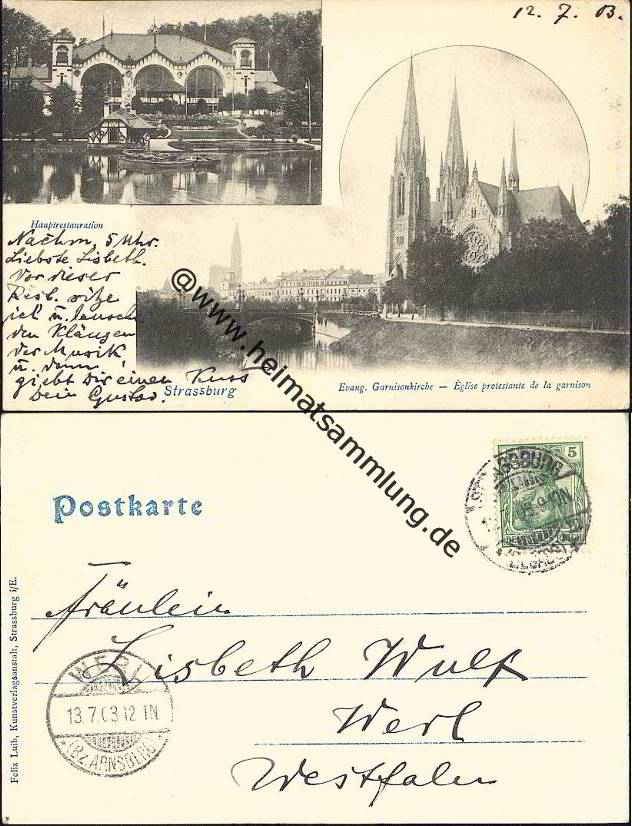 12. 7. 03.
Hauptrestauration
Nachm. 5 Uhr.
Liebste Lisbeth.
Vor dieser
Rest. sitze
ich u. lausche
den Klängen
der Musik
u. dann
giebt Dir einen Kuss
Dein Gustav.
Strassburg
Evang. Garnisonkirche — Église protestante de la garnison
@www.heimatsammlung.de
Postkarte
5
STRASSBURG
Fräulein
Lisbeth Wulf
Werl
Westfalen
WERL
13.7.03 12 1N
(BZ. ARNSBERG)
Felix Luib, Kunstverlagsanstalt, Strassburg i/E.